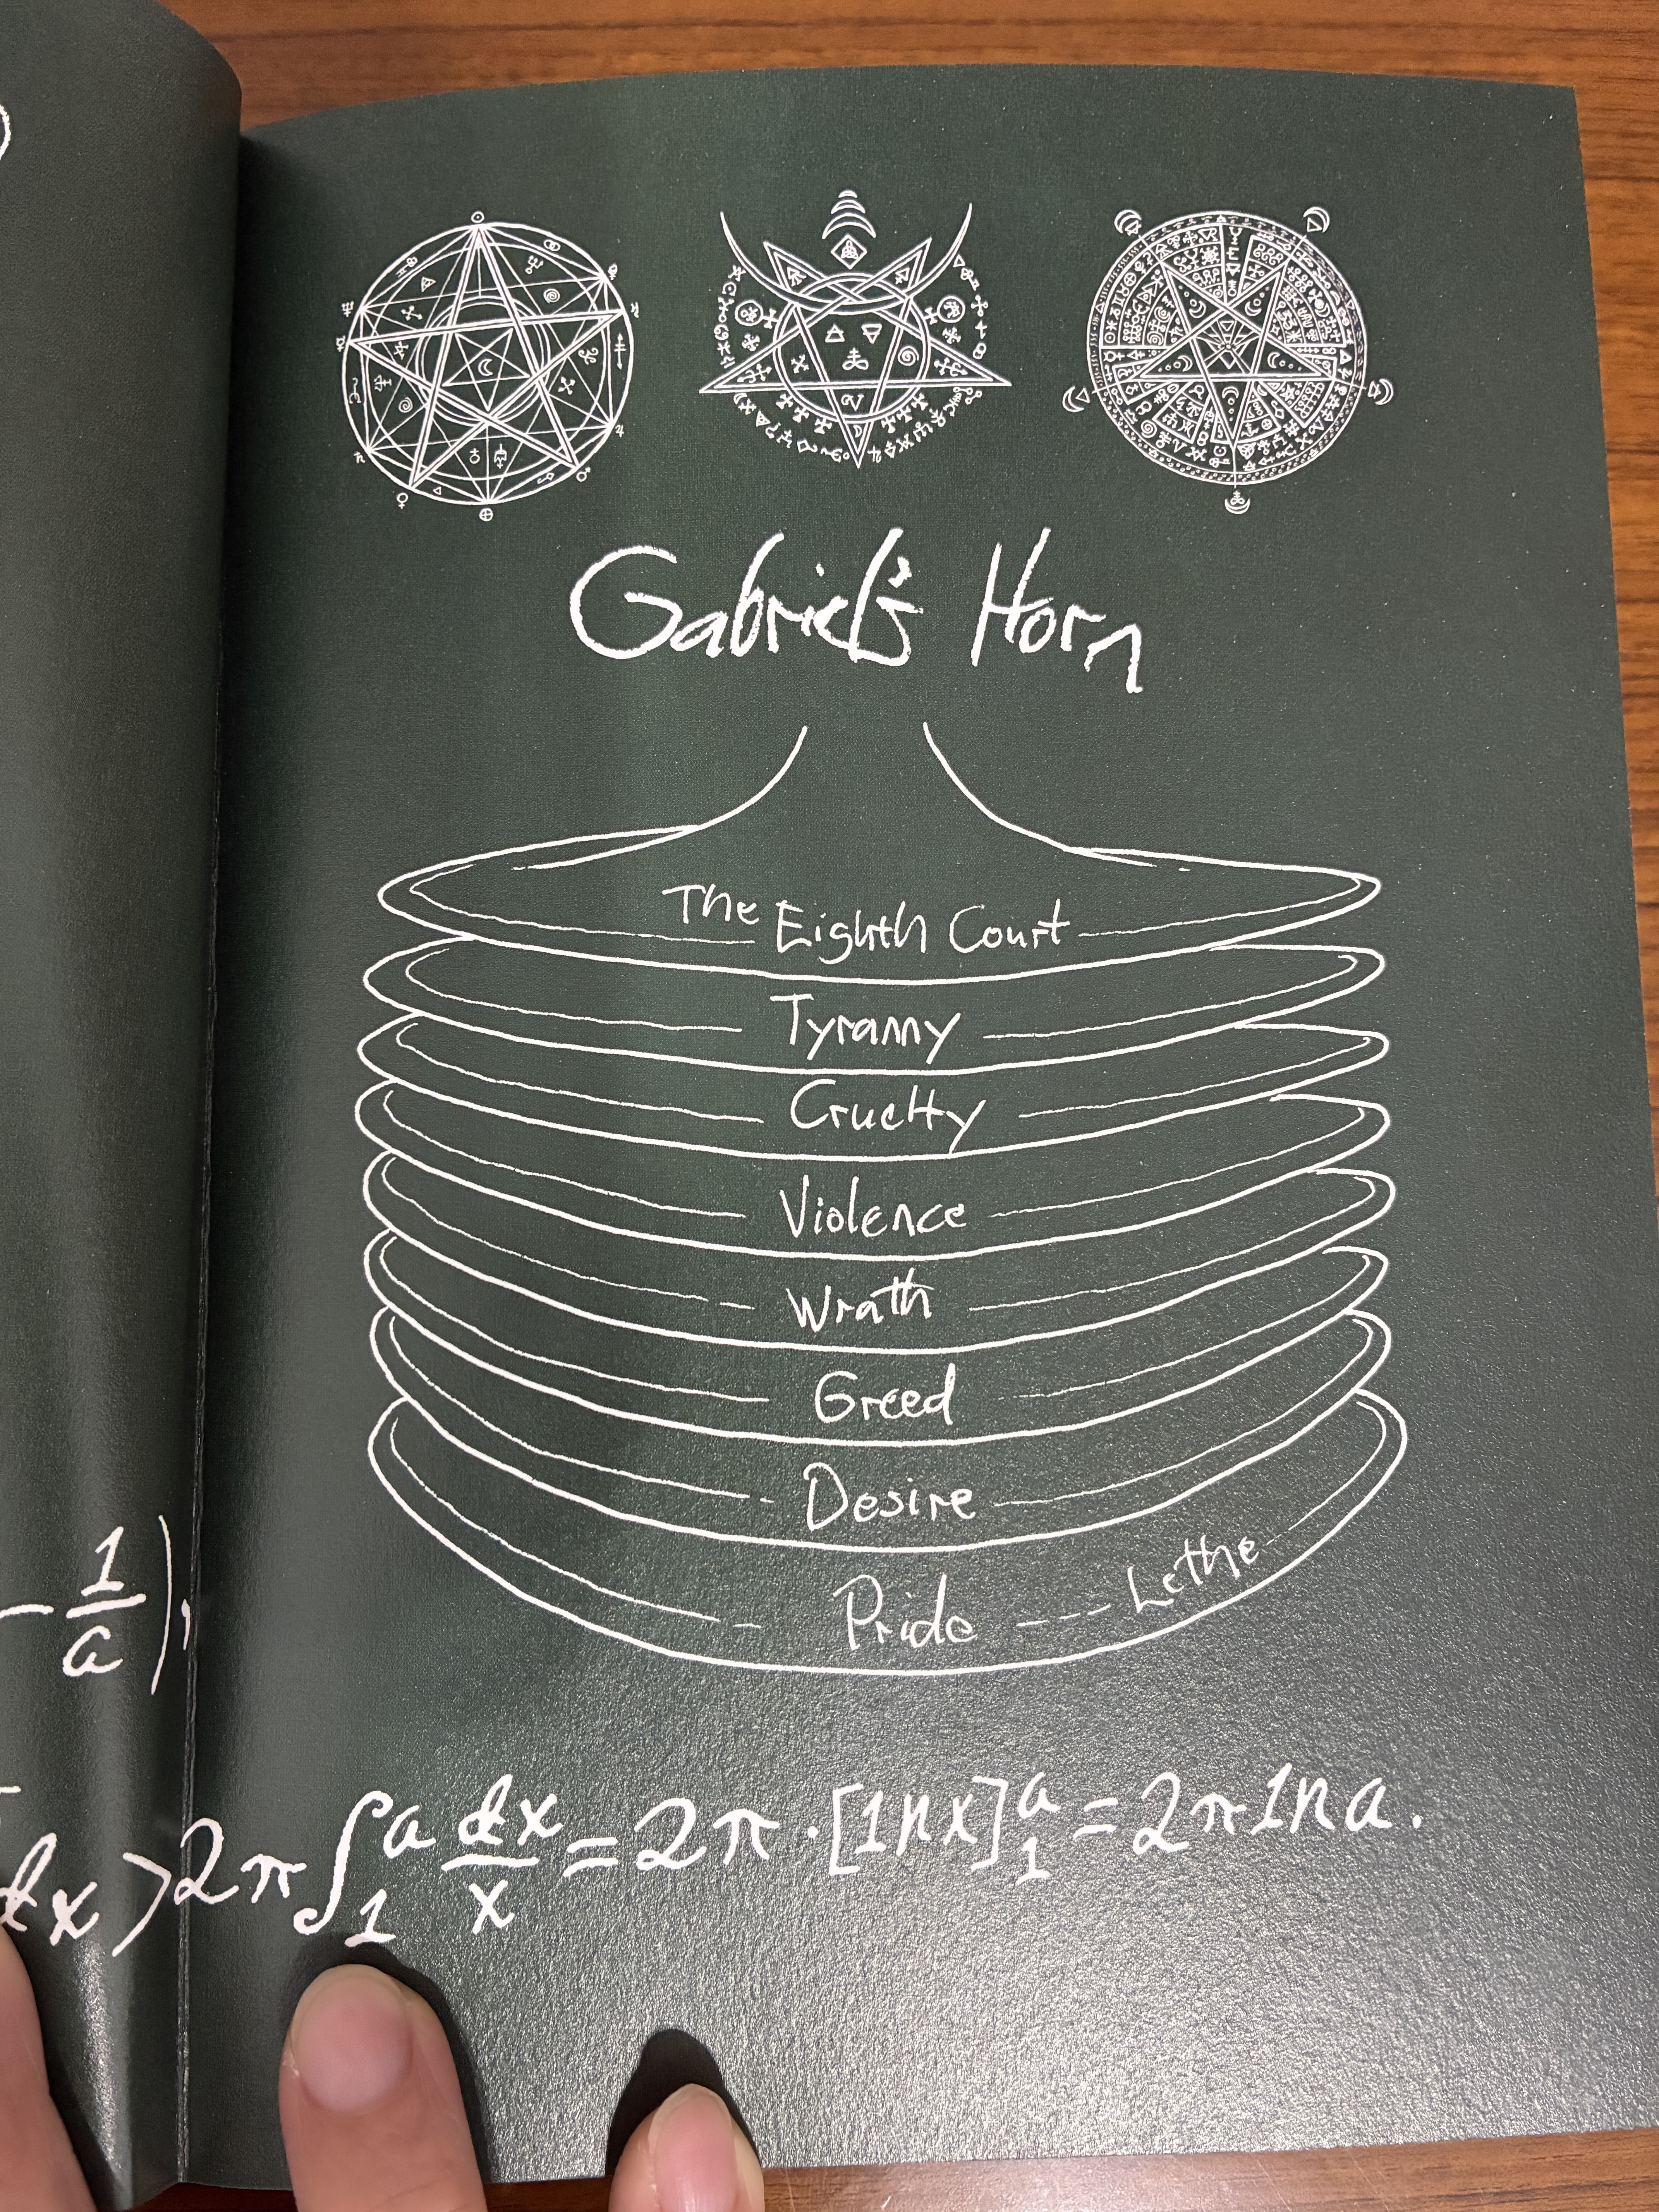 Gabriel's Horn
The Eighth Court
Tyranny
Cruelty
Violence
Wrath
Greed
Desire
Pride Lethe
- 1/a)
dx > 2π∫₁ᵃ dx/x = 2π·[lnx]₁ᵃ = 2π ln a.